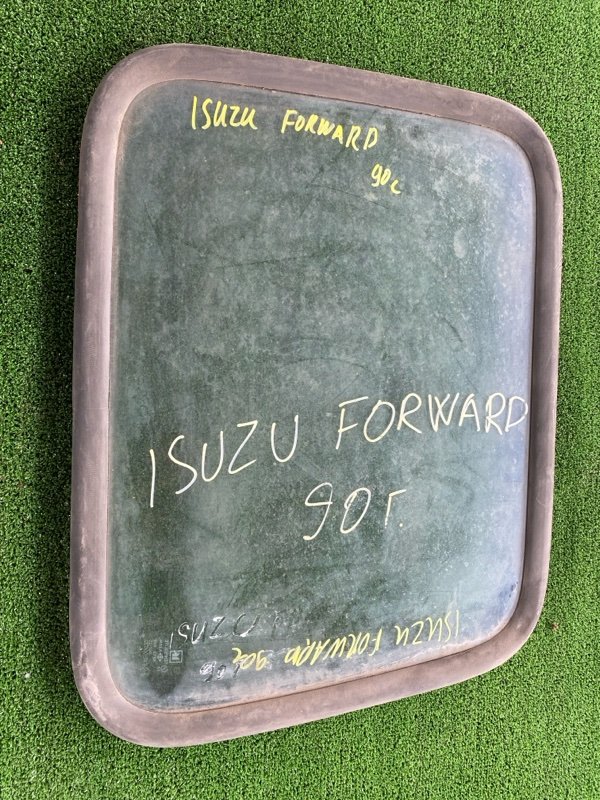 ISUZU FORWARD
90г
ISUZU FORWARD
90г.
ISUZU FORWARD 90г